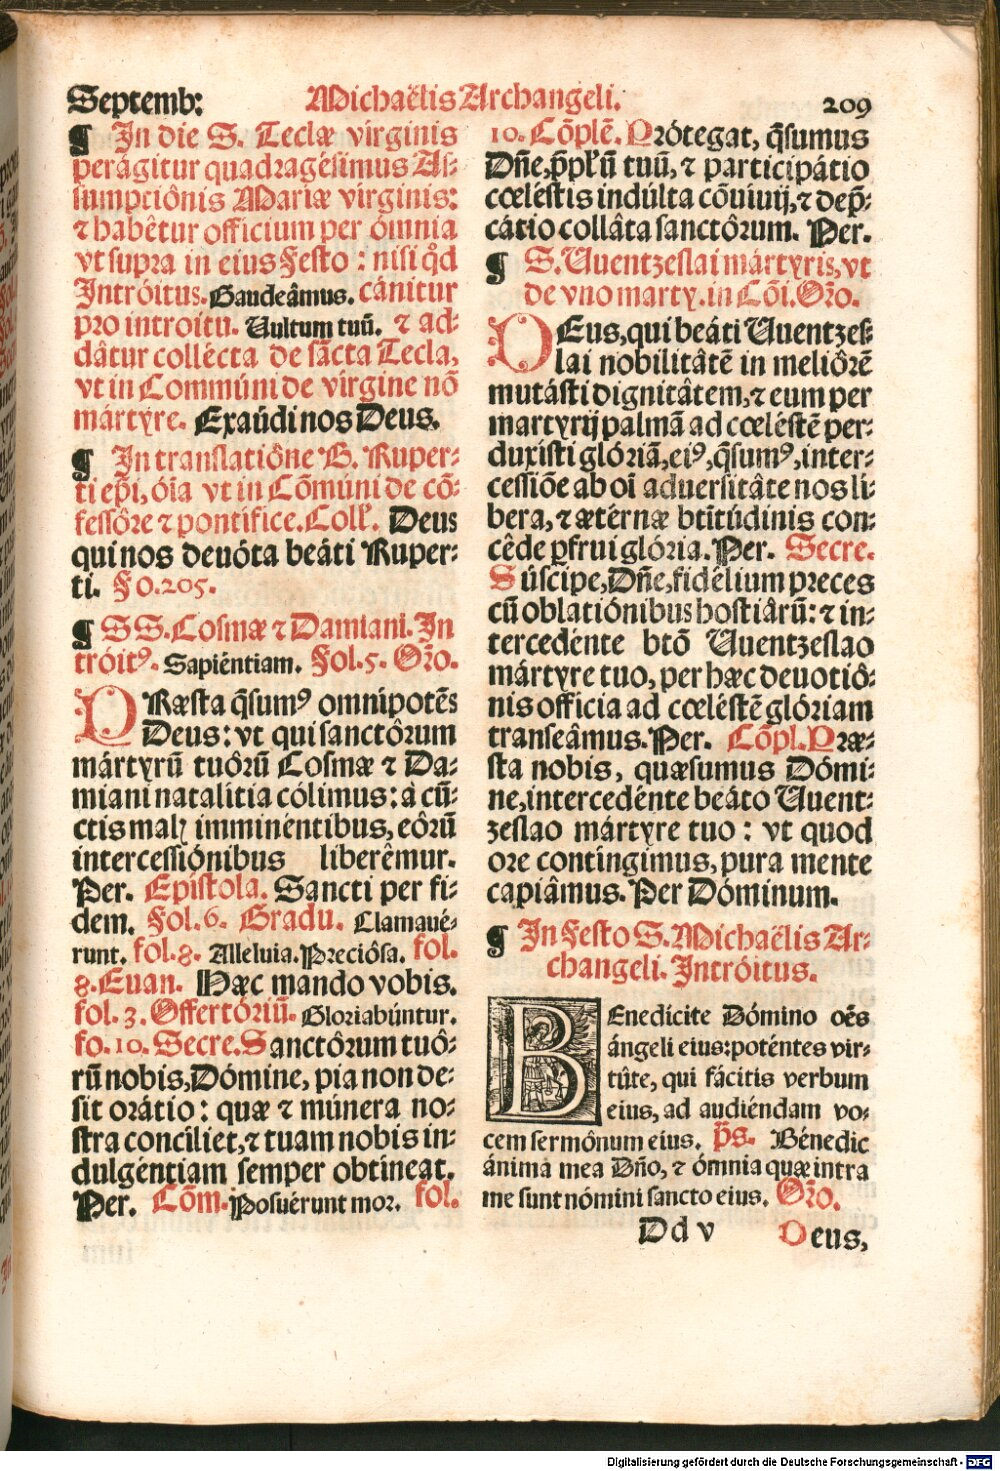 Septemb: Michaëlis Archangeli. 209
¶ In die S. Teclæ vírginis
perágitur quadragésimus As-
sumptiônis Mariæ virginis:
⁊ habêtur officium per ómnia
vt supra in eius Festo : nisi q̊d
Intróitus. Gaudeâmus. cánitur
pro introitu. Uultum tuū. ⁊ ad-
dâtur collécta de sācta Tecla,
vt in Commúni de vírgine nō
mártyre. Exaúdi nos Deus.
¶ In translatiône B. Ruper-
ti epī, óīa vt in Cōmúni de cō-
fessôre ⁊ pontifice. Coll'. Deus
qui nos devóta beáti Ruper-
ti. Fo. 205.
¶ SS. Cosmæ ⁊ Damiani. In
tróit⁹. Sapiéntiam. Fol. 5. Or̄o.
PRæsta q̄sum⁹ omnipotēs
Deus: vt qui sanctôrum
mártyrū tuôrū Cosmæ ⁊ Da-
miani natalítia cólimus: a cū-
ctis malꝭ imminéntibus, eôrū
intercessiónibus liberêmur.
Per. Epístola. Sancti per fi-
dem. Fol. 6. Gradu. Clamavé-
runt. fol. 8. Alleluia. Preciôsa. fol.
8. Euan. Hæc mando vobis.
fol. 3. Offertóriū. Gloriabúntur.
fo. 10. Secre. Sanctôrum tuô-
rū nobis, Dómine, pia non de-
sit orátio : quæ ⁊ múnera no-
stra concíliet, ⁊ tuam nobis in-
dulgéntiam semper obtíneat.
Per. Cōm. Posuérunt mor. fol.
10. Cōplē. Prótegat, q̄sumus
Dn̄e, p̄pl'ū tuū, ⁊ participátio
cœléstis indúlta cōuiuij, ⁊ dep̄-
cátio collâta sanctôrum. Per.
¶ S. Uuentzeslai mártyris, vt
de vno marty. in Cōi. Or̄o.
DEus, qui beáti Uuentzes-
lai nobilitâtē in meliôrē
mutásti dignitâtem, ⁊ eum per
martyrij palmā ad cœléstē per-
duxísti glóriā, ei⁹, q̄sum⁹, inter-
cessiōe ab oī aduersitâte nos lí-
bera, ⁊ ætérnæ bt̄itúdinis con-
cêde ꝑfrui glória. Per. Secre.
Súscipe, Dn̄e, fidélium preces
cū oblatiónibus hostiârū: ⁊ in-
tercedénte btō Uuentzeslao
mártyre tuo, per hæc deuotiô-
nis officia ad cœléstē glóriam
transeâmus. Per. Cōpl. Præ-
sta nobis, quæsumus Dómi-
ne, intercedénte beáto Uuent-
zeslao mártyre tuo : vt quod
ore contíngimus, pura mente
capiâmus. Per Dóminum.
¶ In Festo S. Michaëlis Ar-
changeli. Intróitus.
BEnedícite Dómino oēs
ángeli eius: poténtes vir-
tûte, qui fácitis verbum
eius, ad audiéndam vo-
cem sermônum eius. p̄s. Bénedic
ánima mea Dn̄o, ⁊ ómnia quæ intra
me sunt nómini sancto eius. Or̄o.
Dd v Deus,
Digitalisierung gefördert durch die Deutsche Forschungsgemeinschaft - DFG